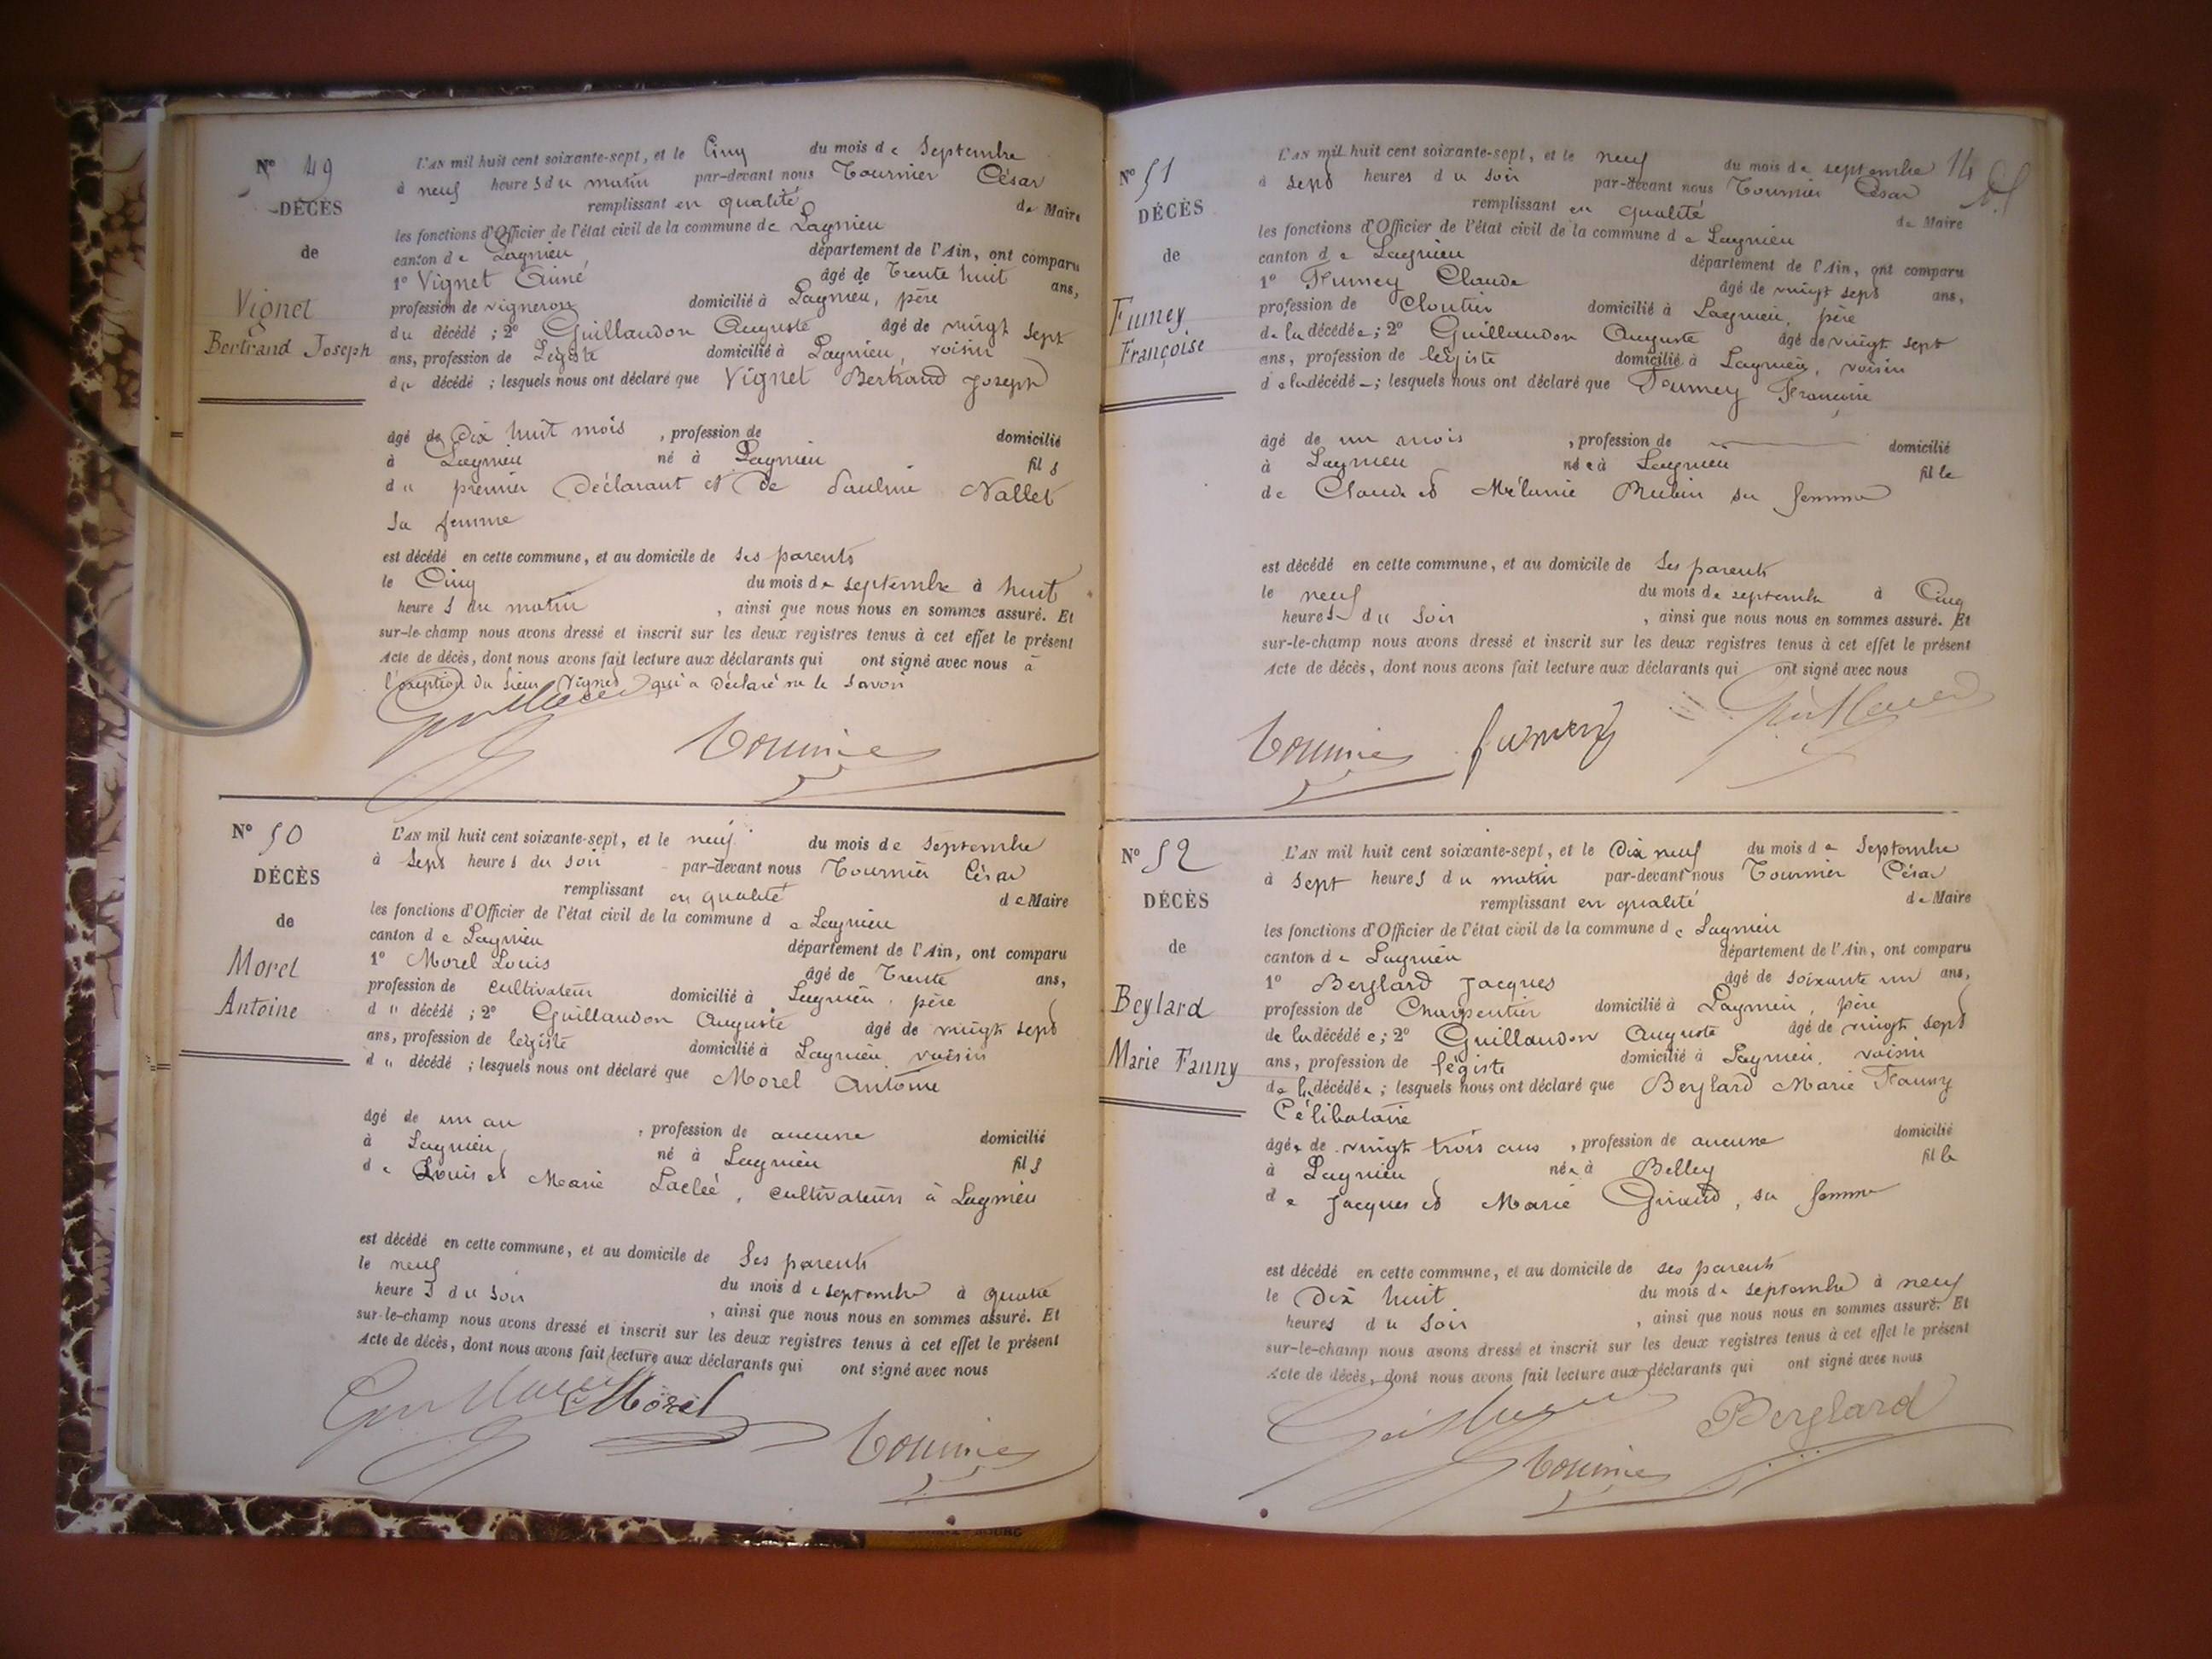 N° 49
DÉCÈS
de
Vignet
Bertrand Joseph
L'AN mil huit cent soixante-sept, et le Cinq du mois de Septembre
à neuf heures du matin par-devant nous Tournier César
remplissant en qualité de Maire
les fonctions d'Officier de l'état civil de la commune de Lagnieu
canton de Lagnieu département de l'Ain, ont comparu
1° Vignet Aimé âgé de Trente huit ans,
profession de vigneron domicilié à Lagnieu, père
du décédé ; 2° Guillaudon Auguste âgé de vingt sept
ans, profession de Légiste domicilié à Lagnieu, voisin
du décédé ; lesquels nous ont déclaré que Vignet Bertrand Joseph
âgé de Dix huit mois , profession de domicilié
à Lagnieu né à Lagnieu fils
du premier Déclarant et de Pauline Nallet
sa femme
est décédé en cette commune, et au domicile de ses parents
le Cinq du mois de septembre à huit
heures du matin , ainsi que nous nous en sommes assuré. Et
sur-le-champ nous avons dressé et inscrit sur les deux registres tenus à cet effet le présent
Acte de décès, dont nous avons fait lecture aux déclarants qui ont signé avec nous à
l'exception du sieur Vignet qui a Déclaré ne le savoir
Tournier
N° 50
DÉCÈS
de
Morel
Antoine
L'AN mil huit cent soixante-sept, et le neuf du mois de Septembre
à Sept heures du soir par-devant nous Tournier César
remplissant en qualité de Maire
les fonctions d'Officier de l'état civil de la commune de Lagnieu
canton de Lagnieu département de l'Ain, ont comparu
1° Morel Louis âgé de Trente ans,
profession de cultivateur domicilié à Lagnieu, père
du décédé ; 2° Guillaudon Auguste âgé de vingt sept
ans, profession de légiste domicilié à Lagnieu, voisin
du décédé ; lesquels nous ont déclaré que Morel Antoine
âgé de un an , profession de aucune domicilié
à Lagnieu né à Lagnieu fils
de Louis et Marie Laclée, cultivateurs à Lagnieu
est décédé en cette commune, et au domicile de Ses parents
le neuf du mois de septembre à quatre
heures du soir , ainsi que nous nous en sommes assuré. Et
sur-le-champ nous avons dressé et inscrit sur les deux registres tenus à cet effet le présent
Acte de décès, dont nous avons fait lecture aux déclarants qui ont signé avec nous
Morel
Tournier
N° 51
DÉCÈS
de
Fumey
Françoise
14
L'AN mil huit cent soixante-sept, et le neuf du mois de septembre
à sept heures du soir par-devant nous Tournier César
remplissant en qualité de Maire
les fonctions d'Officier de l'état civil de la commune de Lagnieu
canton de Lagnieu département de l'Ain, ont comparu
1° Fumey Claude âgé de vingt sept ans,
profession de Cloutier domicilié à Lagnieu, père
de la décédée ; 2° Guillaudon Auguste âgé de vingt sept
ans, profession de légiste domicilié à Lagnieu, voisin
de la décédé ; lesquels nous ont déclaré que Fumey Françoise
âgé de un mois , profession de domicilié
à Lagnieu née à Lagnieu fille
de Claude et Mélanie Rubin sa femme
est décédé en cette commune, et au domicile de Ses parents
le neuf du mois de septembre à Cinq
heures du Soir , ainsi que nous nous en sommes assuré. Et
sur-le-champ nous avons dressé et inscrit sur les deux registres tenus à cet effet le présent
Acte de décès, dont nous avons fait lecture aux déclarants qui ont signé avec nous
Tournier fumey
N° 52
DÉCÈS
de
Beylard
Marie Fanny
L'AN mil huit cent soixante-sept, et le Dix neuf du mois de Septembre
à sept heures du matin par-devant nous Tournier César
remplissant en qualité de Maire
les fonctions d'Officier de l'état civil de la commune de Lagnieu
canton de Lagnieu département de l'Ain, ont comparu
1° Beylard Jacques âgé de soixante un ans,
profession de Charpentier domicilié à Lagnieu, père
de la décédée ; 2° Guillaudon Auguste âgé de vingt sept
ans, profession de légiste domicilié à Lagnieu, voisin
de la décédée ; lesquels nous ont déclaré que Beylard Marie Fanny
Célibataire
âgée de vingt trois ans , profession de aucune domicilié
à Lagnieu née à Belley fille
de Jacques et Marie Guiaud, sa femme
est décédé en cette commune, et au domicile de ses parents
le Dix huit du mois de septembre à neuf
heures du Soir , ainsi que nous nous en sommes assuré. Et
sur-le-champ nous avons dressé et inscrit sur les deux registres tenus à cet effet le présent
Acte de décès, dont nous avons fait lecture aux déclarants qui ont signé avec nous
Beylard
Tournier